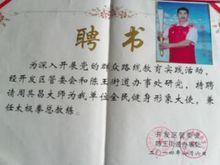 聘书
为深入开展党的群众路线教育实践活动,
经开发区管委会和陈王街道办事处研究,特聘
请周其昌大师为我单位全民健身形象大使,兼
任太极拳总教练。
开发区管委会
陈王街道办事处
二〇一四年六月六日